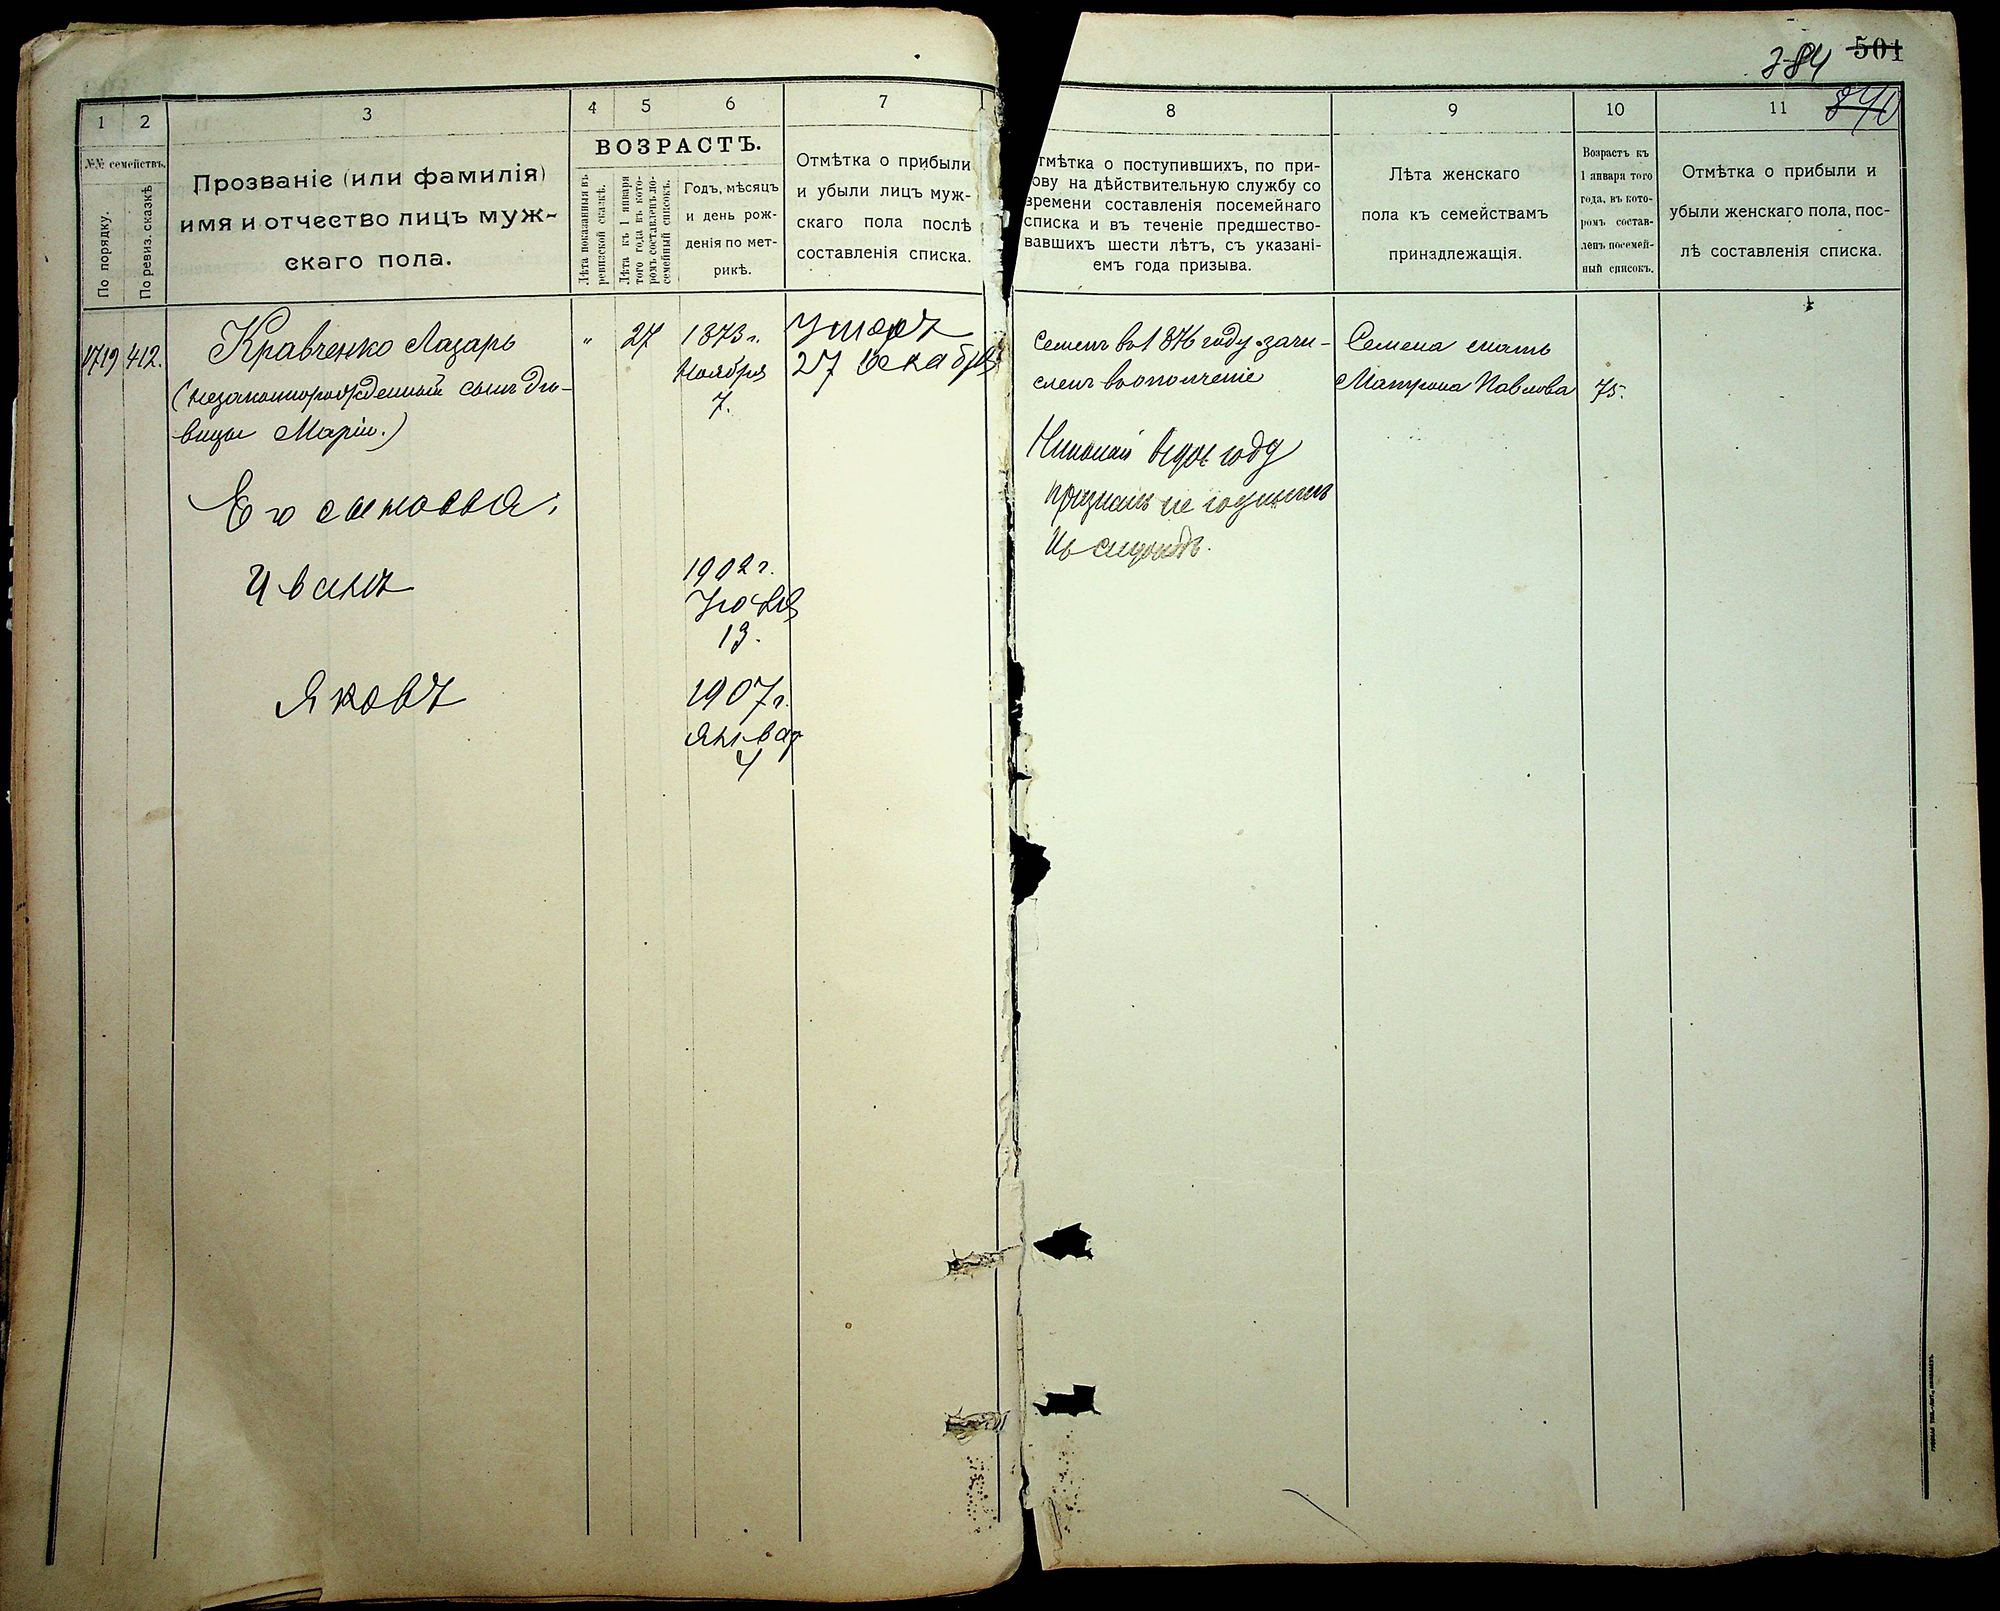 384 501
840
1 2 3 4 5 6 7 8 9 10 11
№№ семействъ.
По порядку.
По ревиз. сказкѣ
Прозваніе (или фамилія)
имя и отчество лицъ муж-
скаго пола.
ВОЗРАСТЪ.
Лѣта показанныя въ
ревизской сказкѣ.
Лѣта къ 1 января
того года въ кото-
ромъ составленъ по-
семейный списокъ.
Годъ, мѣсяцъ
и день рож-
денія по мет-
рикѣ.
Отмѣтка о прибыли
и убыли лицъ муж-
скаго пола послѣ
составленія списка.
тмѣтка о поступившихъ, по при-
ову на дѣйствительную службу со
времени составленія посемейнаго
списка и въ теченіе предшество-
вавшихъ шести лѣтъ, съ указані-
емъ года призыва.
Лѣта женскаго
пола къ семействамъ
принздлежащія.
Возрастъ къ
1 января того
года, въ кото-
ромъ состав-
ленъ посемей-
ный списокъ.
Отмѣтка о прибыли и
убыли женскаго пола, пос-
лѣ составленія списка.
1719 412. Кравченко Лазарь " 27 1873 г.
Ноября
7.
(незаконнорожденный сынъ дѣ-
вицы Маріи.)
Умеръ
27 декабря
Семенъ въ 1876 году зачи-
сленъ въ ополченіе
Семена мать
Матрона Павлова 75.
Николай въ 1901 году
признанъ не годнымъ
къ службѣ.
Его сыновья:
Иванъ 1902 г.
13.
Яковъ 1907 г.
Январ
4